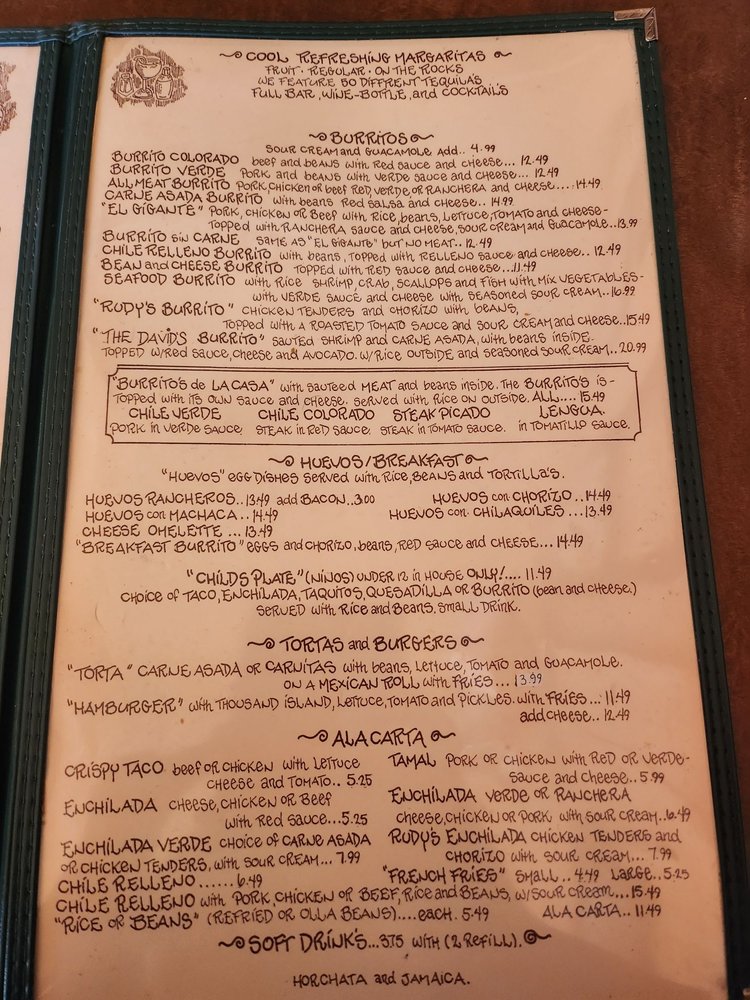 COOL REFRESHING MARGARITAS
FRUIT · REGULAR · ON THE ROCKS
WE FEATURE 50 DIFFRENT TEQUILA'S
FULL BAR, WINE-BOTTLE, and COCKTAIL'S
BURRITOS
SOUR CREAM and GUACAMOLE Add.. 4.99
BURRITO COLORADO beef and beans with Red sauce and cheese... 12.49
BURRITO VERDE Pork and beans with VERDE sauce and cheese... 12.49
ALL MEAT BURRITO Pork, Chicken or beef Red, verde, or Ranchera and cheese....14.49
CARNE ASADA BURRITO with beans Red salsa and cheese.. 14.99
"EL GIGANTE" Pork, chicken or Beef with Rice, beans, Lettuce, Tomato and cheese-
Topped with Ranchera sauce and cheese, sour cream and Guacamole..13.99
BURRITO sin CARNE same as "EL GIGANTE" but NO MEAT.. 12.49
CHILE RELLENO BURRITO with beans, topped with RELLENO sauce and cheese.. 12.49
BEAN and CHEESE BURRITO Topped with RED sauce and cheese...11.49
SEAFOOD BURRITO with Rice Shrimp, Crab, Scallops and Fish with Mix Vegetables-
with VERDE sauce and cheese with seasoned sour cream..16.99
"RUDY'S BURRITO" CHICKEN TENDERS and CHORIZO with beans,
Topped with a Roasted Tomato sauce and sour cream and cheese..15.49
"THE DAVID'S BURRITO" SAUTED SHRIMP and CARNE ASADA, with beans inside.
Topped w/red sauce, cheese and Avocado. w/Rice outside and seasoned sour cream.. 20.99
"BURRITO'S de LA CASA" with sauteed MEAT and beans inside. The BURRITO'S is -
Topped with its own sauce and cheese. served with Rice on outside. ALL.... 15.49
CHILE VERDE CHILE COLORADO STEAK PICADO LENGUA.
PORK in VERDE SAUCE. STEAK in RED SAUCE. STEAK in TOMATO SAUCE. in TOMATILLO SAUCE.
HUEVOS/BREAKFAST
"HUEVOS" egg dishes served with Rice, Beans and Tortilla's.
HUEVOS RANCHEROS..13.49 add BACON..3.00 HUEVOS con CHORIZO..14.49
HUEVOS con MACHACA..14.49 HUEVOS con CHILAQUILES...13.49
CHEESE OMELETTE ...13.49
"BREAKFAST BURRITO" eggs and chorizo, beans, Red sauce and cheese... 14.49
"CHILD'S PLATE" (NIÑOS) UNDER 12 in HOUSE ONLY!.... 11.49
Choice of Taco, Enchilada, Taquitos, Quesadilla or Burrito (bean and cheese.)
SERVED with Rice and Beans. small Drink.
TORTAS and BURGERS
"TORTA" CARNE ASADA OR CARNITAS with beans, Lettuce, Tomato and Guacamole.
ON A MEXICAN ROLL with FRIES... 13.99
"HAMBURGER" with THOUSAND ISLAND, Lettuce, Tomato and Pickles. with FRIES... 11.49
add cheese.. 12.49
ALA CARTA
CRISPY TACO beef or Chicken with Lettuce
Cheese and Tomato.. 5.25
ENCHILADA cheese, chicken or Beef
with Red Sauce...5.25
ENCHILADA VERDE choice of CARNE ASADA
or CHICKEN TENDERS, with SOUR CREAM... 7.99
CHILE RELLENO...... 6.49
TAMAL Pork or chicken with Red or Verde-
sauce and cheese.. 5.99
ENCHILADA VERDE OR RANCHERA
cheese, chicken or Pork with sour cream..6.49
RUDY'S ENCHILADA CHICKEN TENDERS and
CHORIZO with sour cream... 7.99
"FRENCH FRIES" SMALL.. 4.49 LARGE..5.25
CHILE RELLENO with Pork, Chicken or Beef, Rice and Beans, w/sour cream...15.49
"RICE OR BEANS" (REFRIED OR OLLA BEANS)....each. 5.49 ALA CARTA.. 11.49
SOFT DRINK'S...3.75 WITH (2 REFILL).
HORCHATA and JAMAICA.